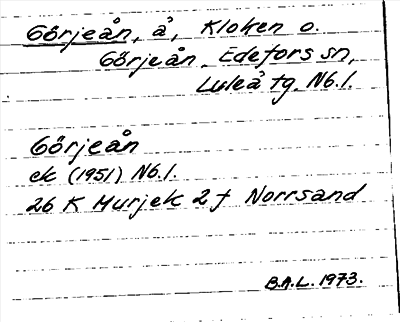 Görjeån, å, Kloken o.
Görjeån, Edefors sn,
Luleå tg. Nb.l.
Görjeån
ek (1951) Nb.l.
26 K Murjek 2 f Norrsand
B.A.L. 1973.